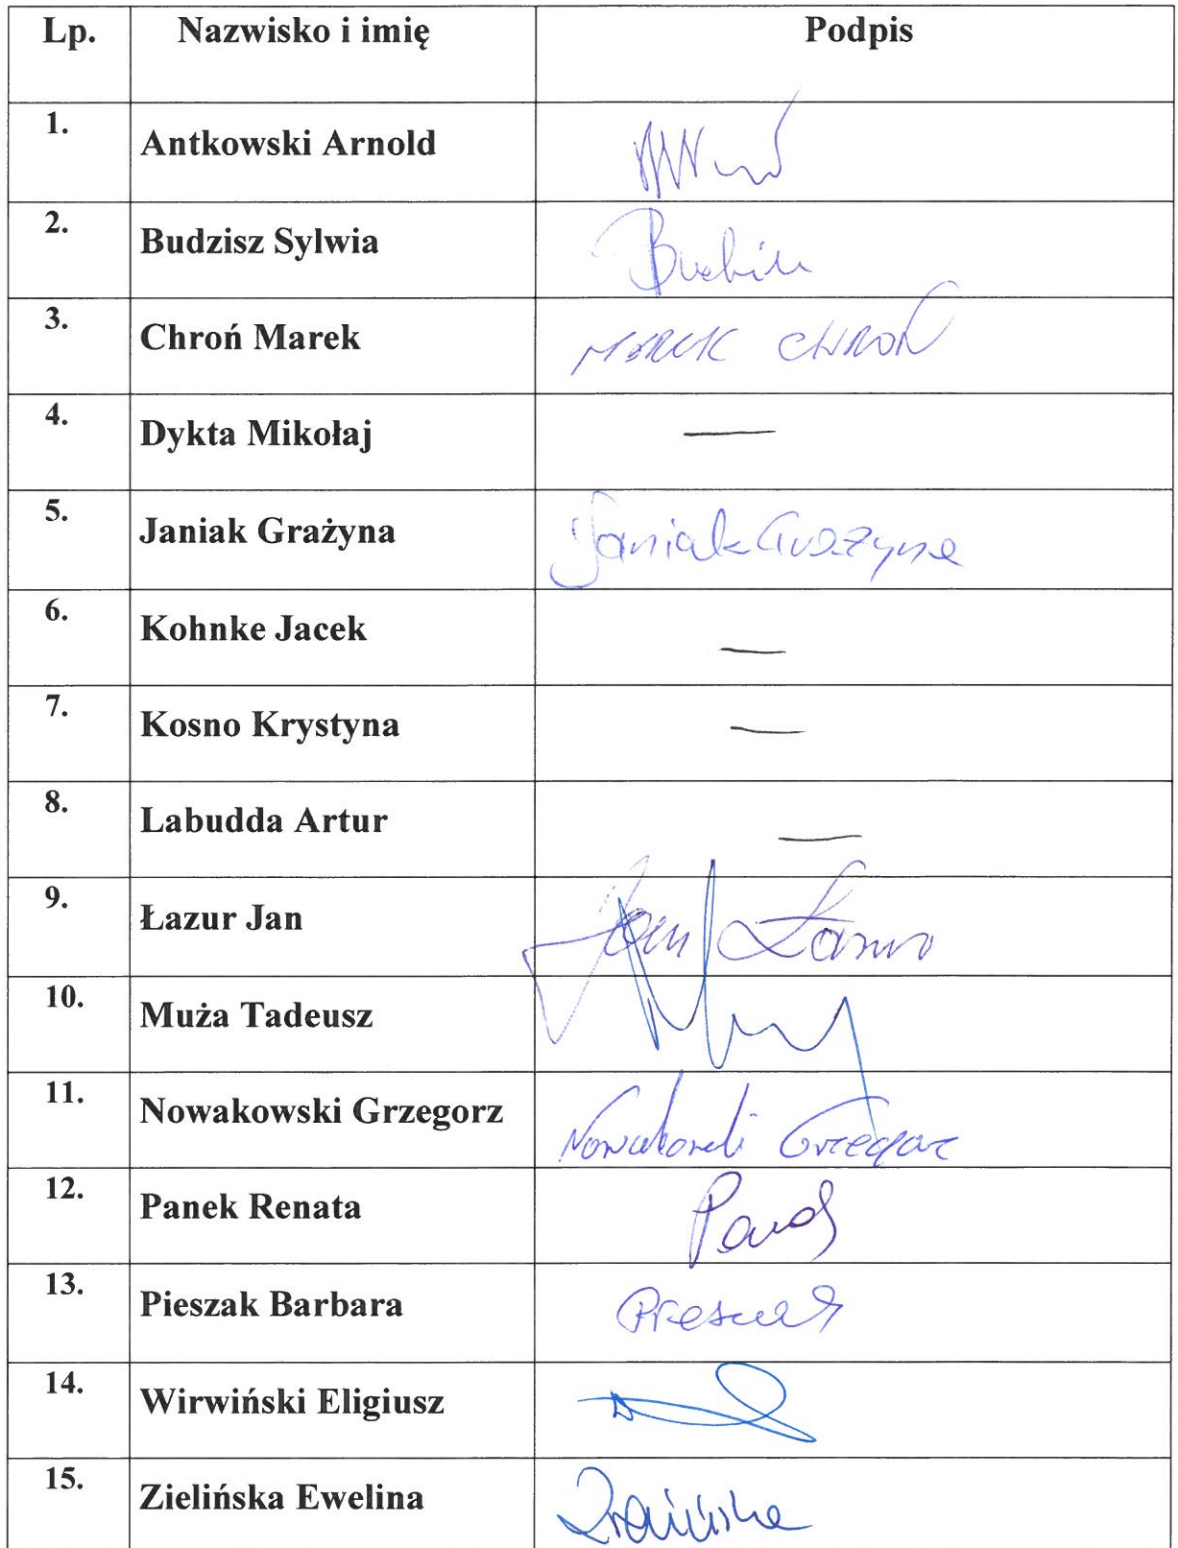 Lp. Nazwisko i imię Podpis
1. Antkowski Arnold
2. Budzisz Sylwia
3. Chroń Marek MAREK CHROŃ
4. Dykta Mikołaj —
5. Janiak Grażyna Janiak Grażyna
6. Kohnke Jacek —
7. Kosno Krystyna —
8. Labudda Artur —
9. Łazur Jan Jan Łazur
10. Muża Tadeusz
11. Nowakowski Grzegorz Nowakowski Grzegorz
12. Panek Renata
13. Pieszak Barbara Pieszak
14. Wirwiński Eligiusz
15. Zielińska Ewelina Zielińska